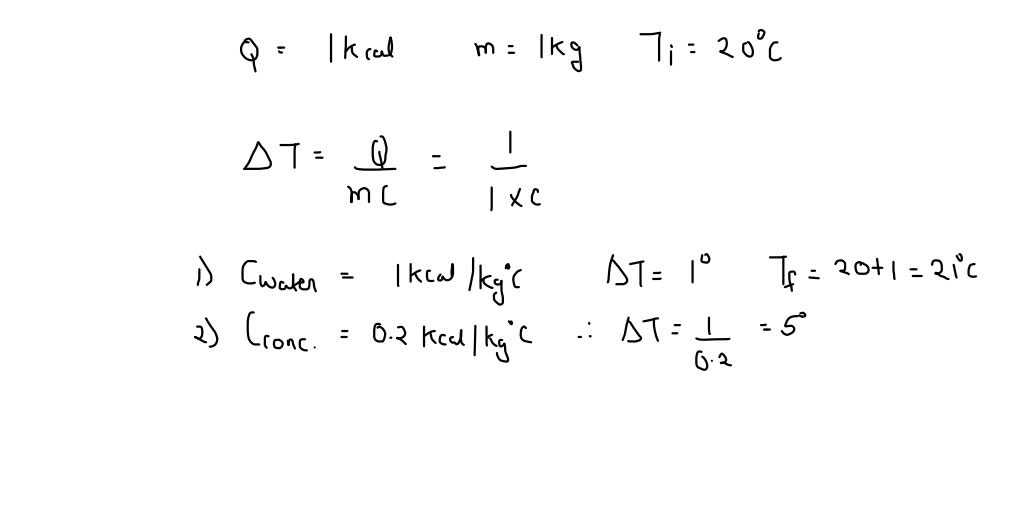 Q = 1 kcal m = 1kg Ti = 20°C
ΔT = Q/mC = 1/1×C
1) Cwater = 1kcal/kg°C ΔT = 1° Tf = 20+1 = 21°C
2) Cconc. = 0.2 kcal/kg°C ∴ ΔT = 1/0.2 = 5°